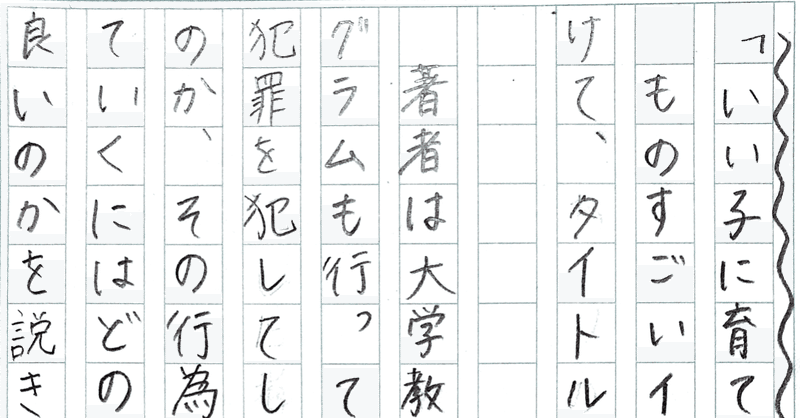 「いい子に育て
ものすごいイ
けて、タイトル
著者は大学教
グラムも行って
犯罪を犯してし
のか、その行為
ていくにはどの
良いのかを説き